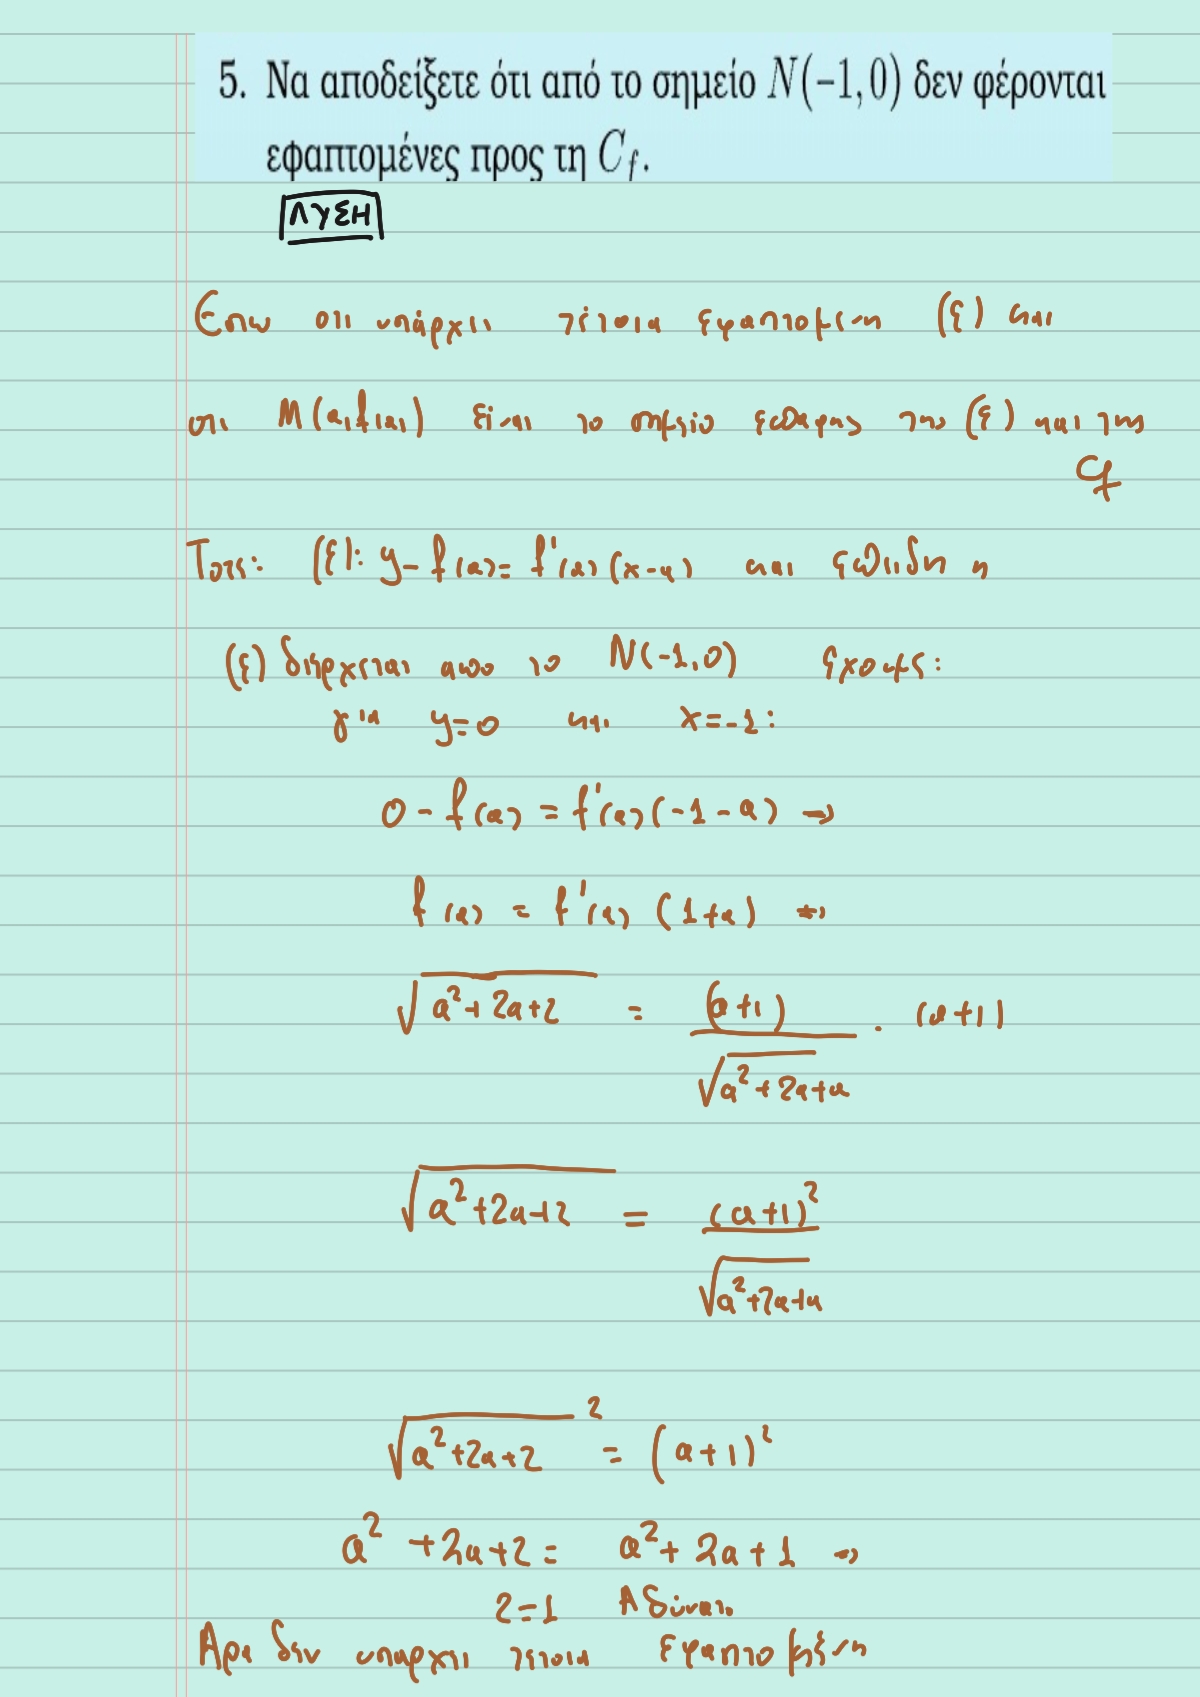 5. Να αποδείξετε ότι από το σημείο N(−1, 0) δεν φέρονται
εφαπτομένες προς τη C_f.
ΛΥΣΗ
Εστω οτι υπάρχει τέτοια εφαπτομενη (ε) και
οτι M(α, f(α)) είναι το σημείο επαφης της (ε) και της
C_f
Τοτε: (ε): y - f(α) = f'(α)(x-α) και επειδη η
(ε) διέρχεται απο το N(-1,0) έχουμε:
για y=0 και x=-1:
0 - f(α) = f'(α)(-1-α) ⇒
f(α) = f'(α)(1+α) ⇒
√(α²+2α+2) = (α+1)/√(α²+2α+α) · (α+1)
√(α²+2α+2) = (α+1)²/√(α²+2α+α)
√(α²+2α+2)² = (α+1)²
α²+2α+2 = α²+2α+1 ⇒
2=1 Αδύνατο
Αρα δεν υπαρχει τετοια εφαπτομένη